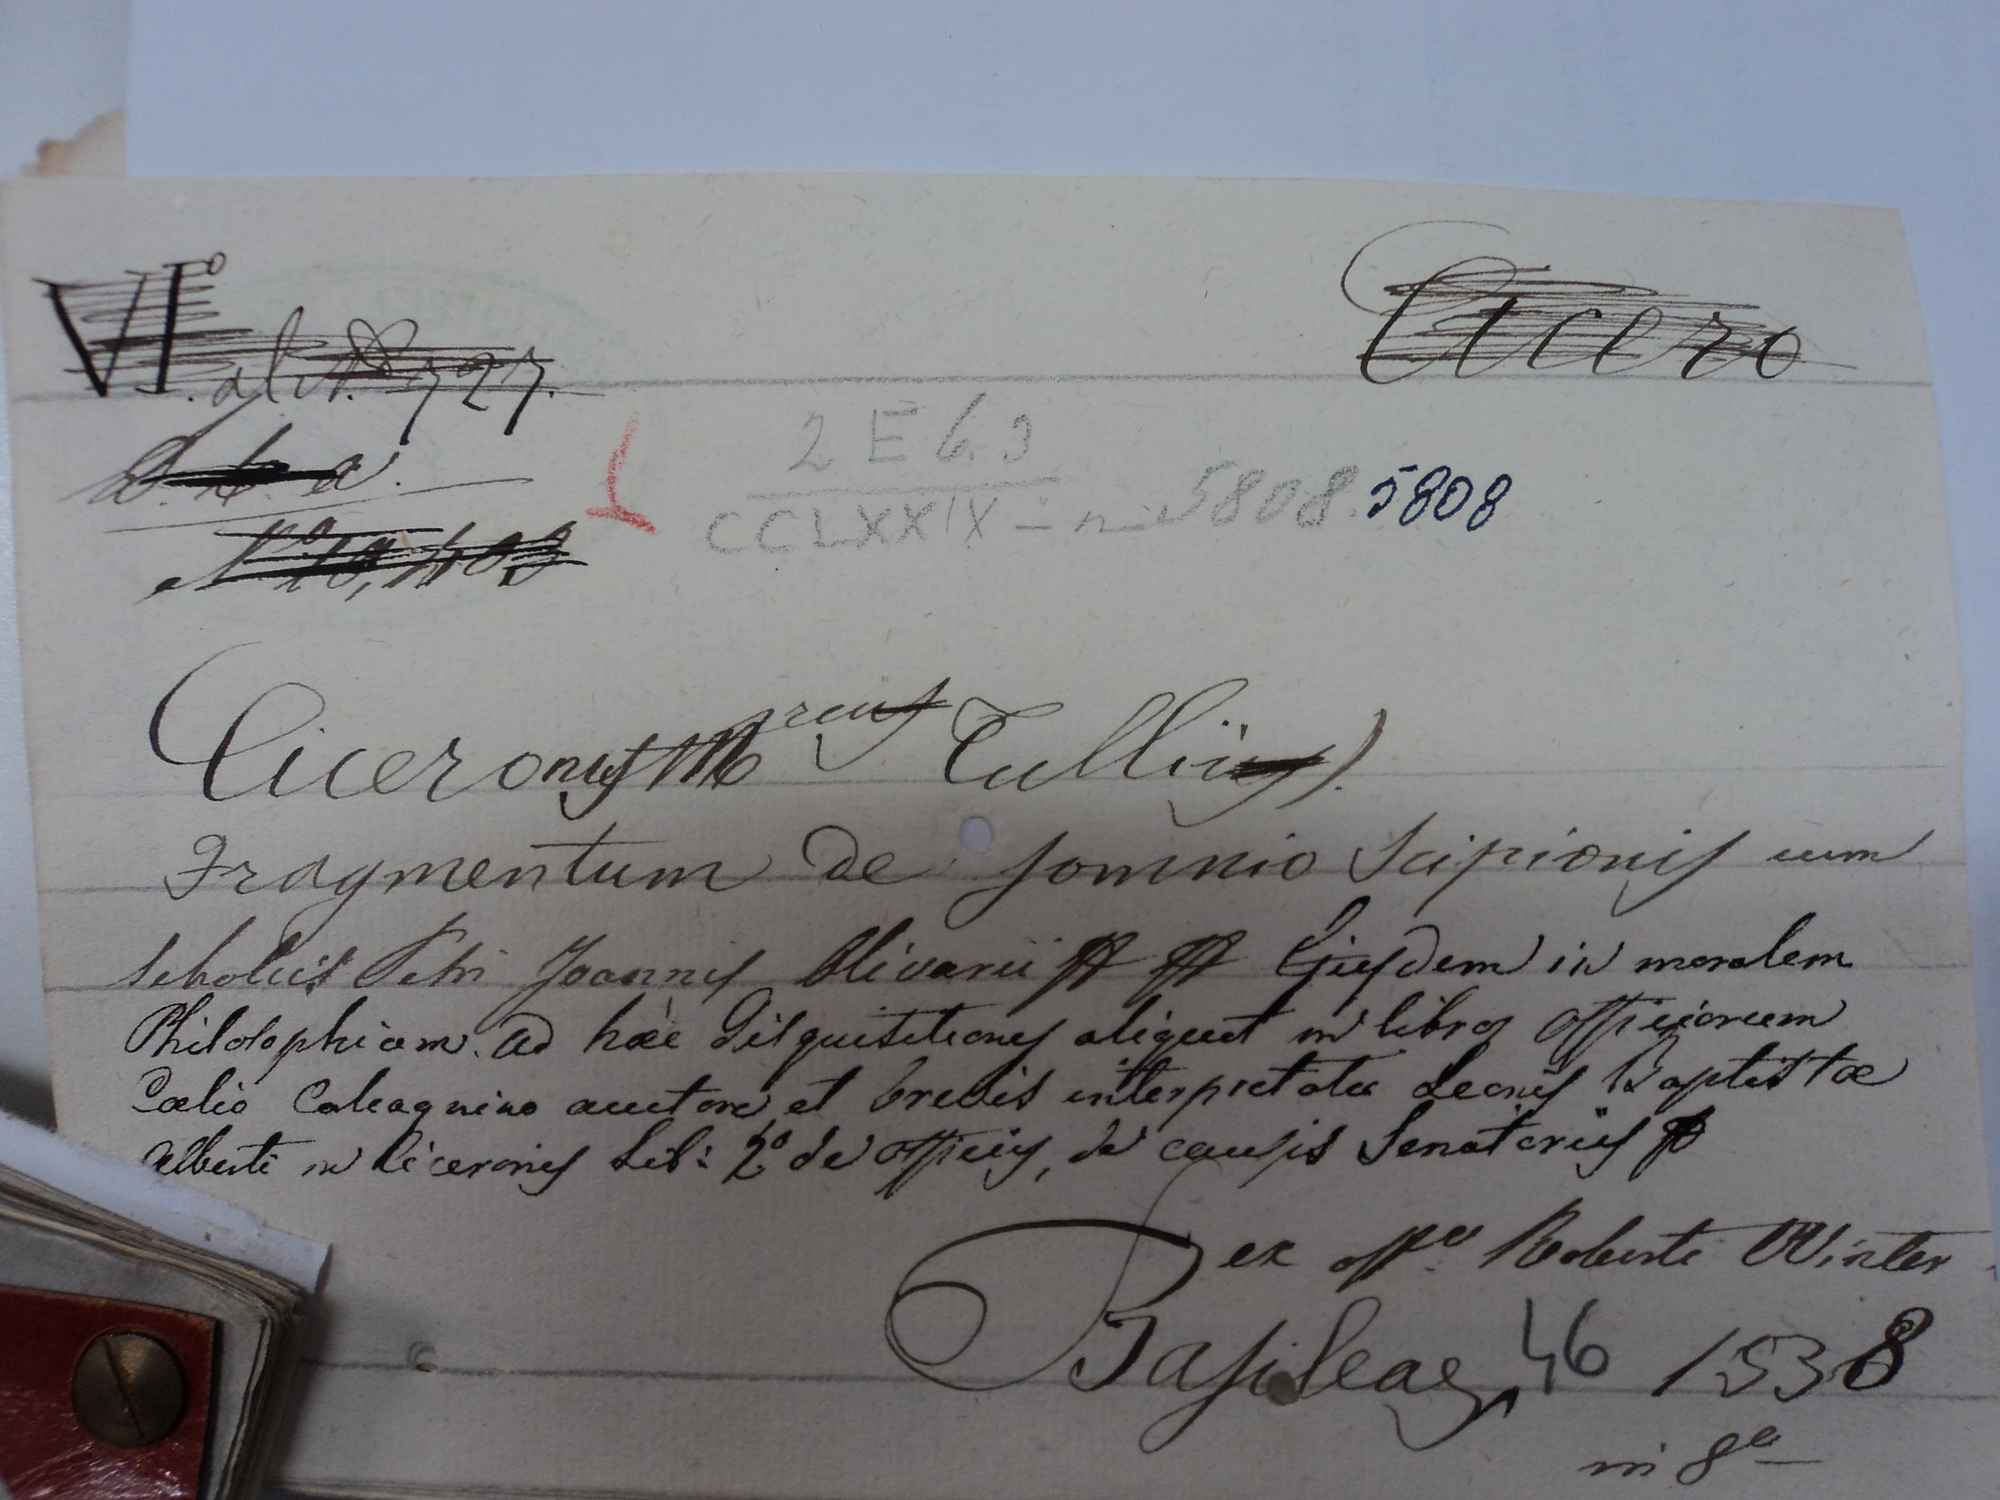 VIº Cicero
al Nº 727.
d. b. a.
Nº 10,403
2 E 6.9
CCLXXIX - n. 5808. 5808
Ciceronis Mrcus Tullii).
Fragmentum de somnio Scipionis cum
scholiis Petri Joannis Olivarii Ejusdem in moralem
Philosophiam. ad hæc disquisitiones aliquot in libros officiorum
Cælio Calcagnino auctore et brevis interpretatio Leonis Baptistæ
Alberti in Ciceronis Lib: 2º de officiis, de causis Senatoriis
ex offª Roberti Winter
Basileae, 46 1538
in 8º